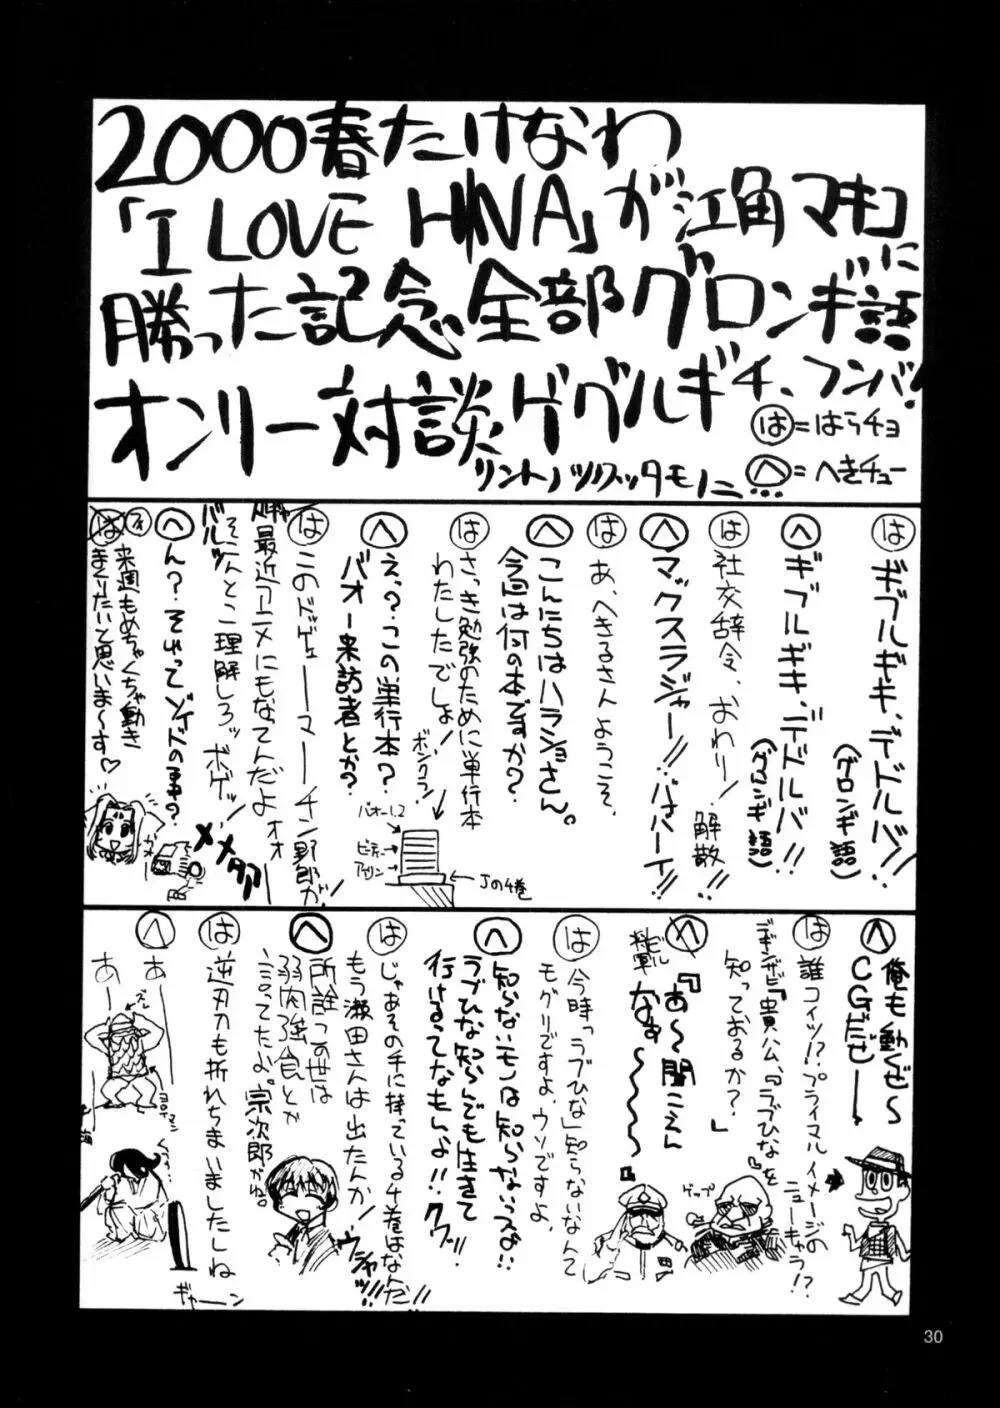 2000春たけなわ
「I LOVE HINA」が江角マキコに
勝った記念全部グロンギ語
オンリー対談ゲゲルギチ、フンバ!
リントノツクッタモノニ…
は=はらチョ
へ=へきチュー
は ギブルギキ、デドルバ!!
(グロンギ語)
へ ギブルギキ、デドルバ!!
(グロンギ語)
は 社交辞令、おわり!
解散!!
へ マックスラジャー!!バはハーイ!!
は あ、へきるさんようこそ、
へ こんにちはハラショさん。
今回は何の本ですか?
は さっき勉強のために単行本
わたしたでしょ!
ボンクラ!
へ えっ?この単行本?
バオー来訪者とか?
バオー1、2
ビーティー
アイリン
Jの4巻
は このドッゲェーーマーーチン野郎が!
最近アニメにもなってんだよオオ
そこんとこ理解しろッボゲッ!
バルッ
へ ん?それってゾイドの事?
メメタア
そ
来週もめちゃくちゃ動き
まくりたいと思いま〜す♡
へ 俺も動くぜ〜
CGだぜ——
は 誰コイツ!?プライマルイメージの
ニューキャラ!?
デギンザビ『貴公、『ラブひな』を
知っておるか?』
ゲップ
へ 『あ〜聞こえん
なぁ〜〜〜〜〜』
ビル
将軍
は 今時「ラブひな」知らないなんて
モグリですよ、ウソですよ、
へ 知らないモンは知らないっスよ!!
ラブひな知らんでも生きて
行けるってなもんよ!!クワッ!!
は じゃあその手に持っている4巻はなんだ!!
もう瀬田さんは出たんか!
ウシャッ!!
へ 所詮この世は
弱肉強食とか
言ってたよ。宗次郎がね。
は 逆刃刀も折れちまいましたしね
ギャーン
へ あー
あー
30